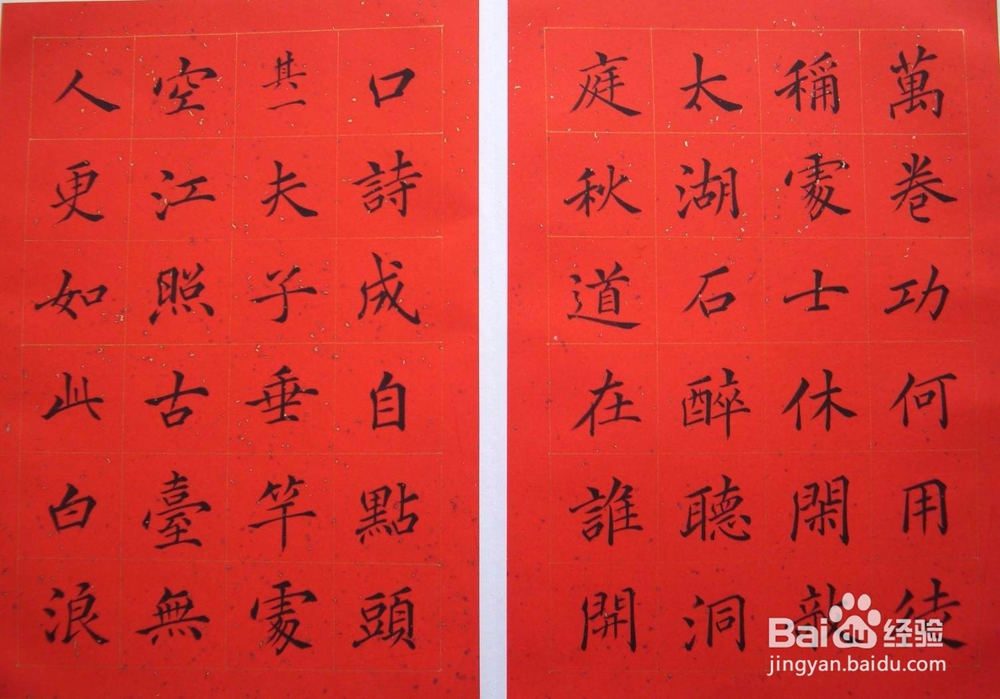 萬卷功何用徒
稱處士休閑
太湖石醉聽洞
庭秋道在誰開
口詩成自點頭
其一夫子垂竿處
空江照古臺無
人更如此白浪
Baidu经验
jingyan.baidu.com